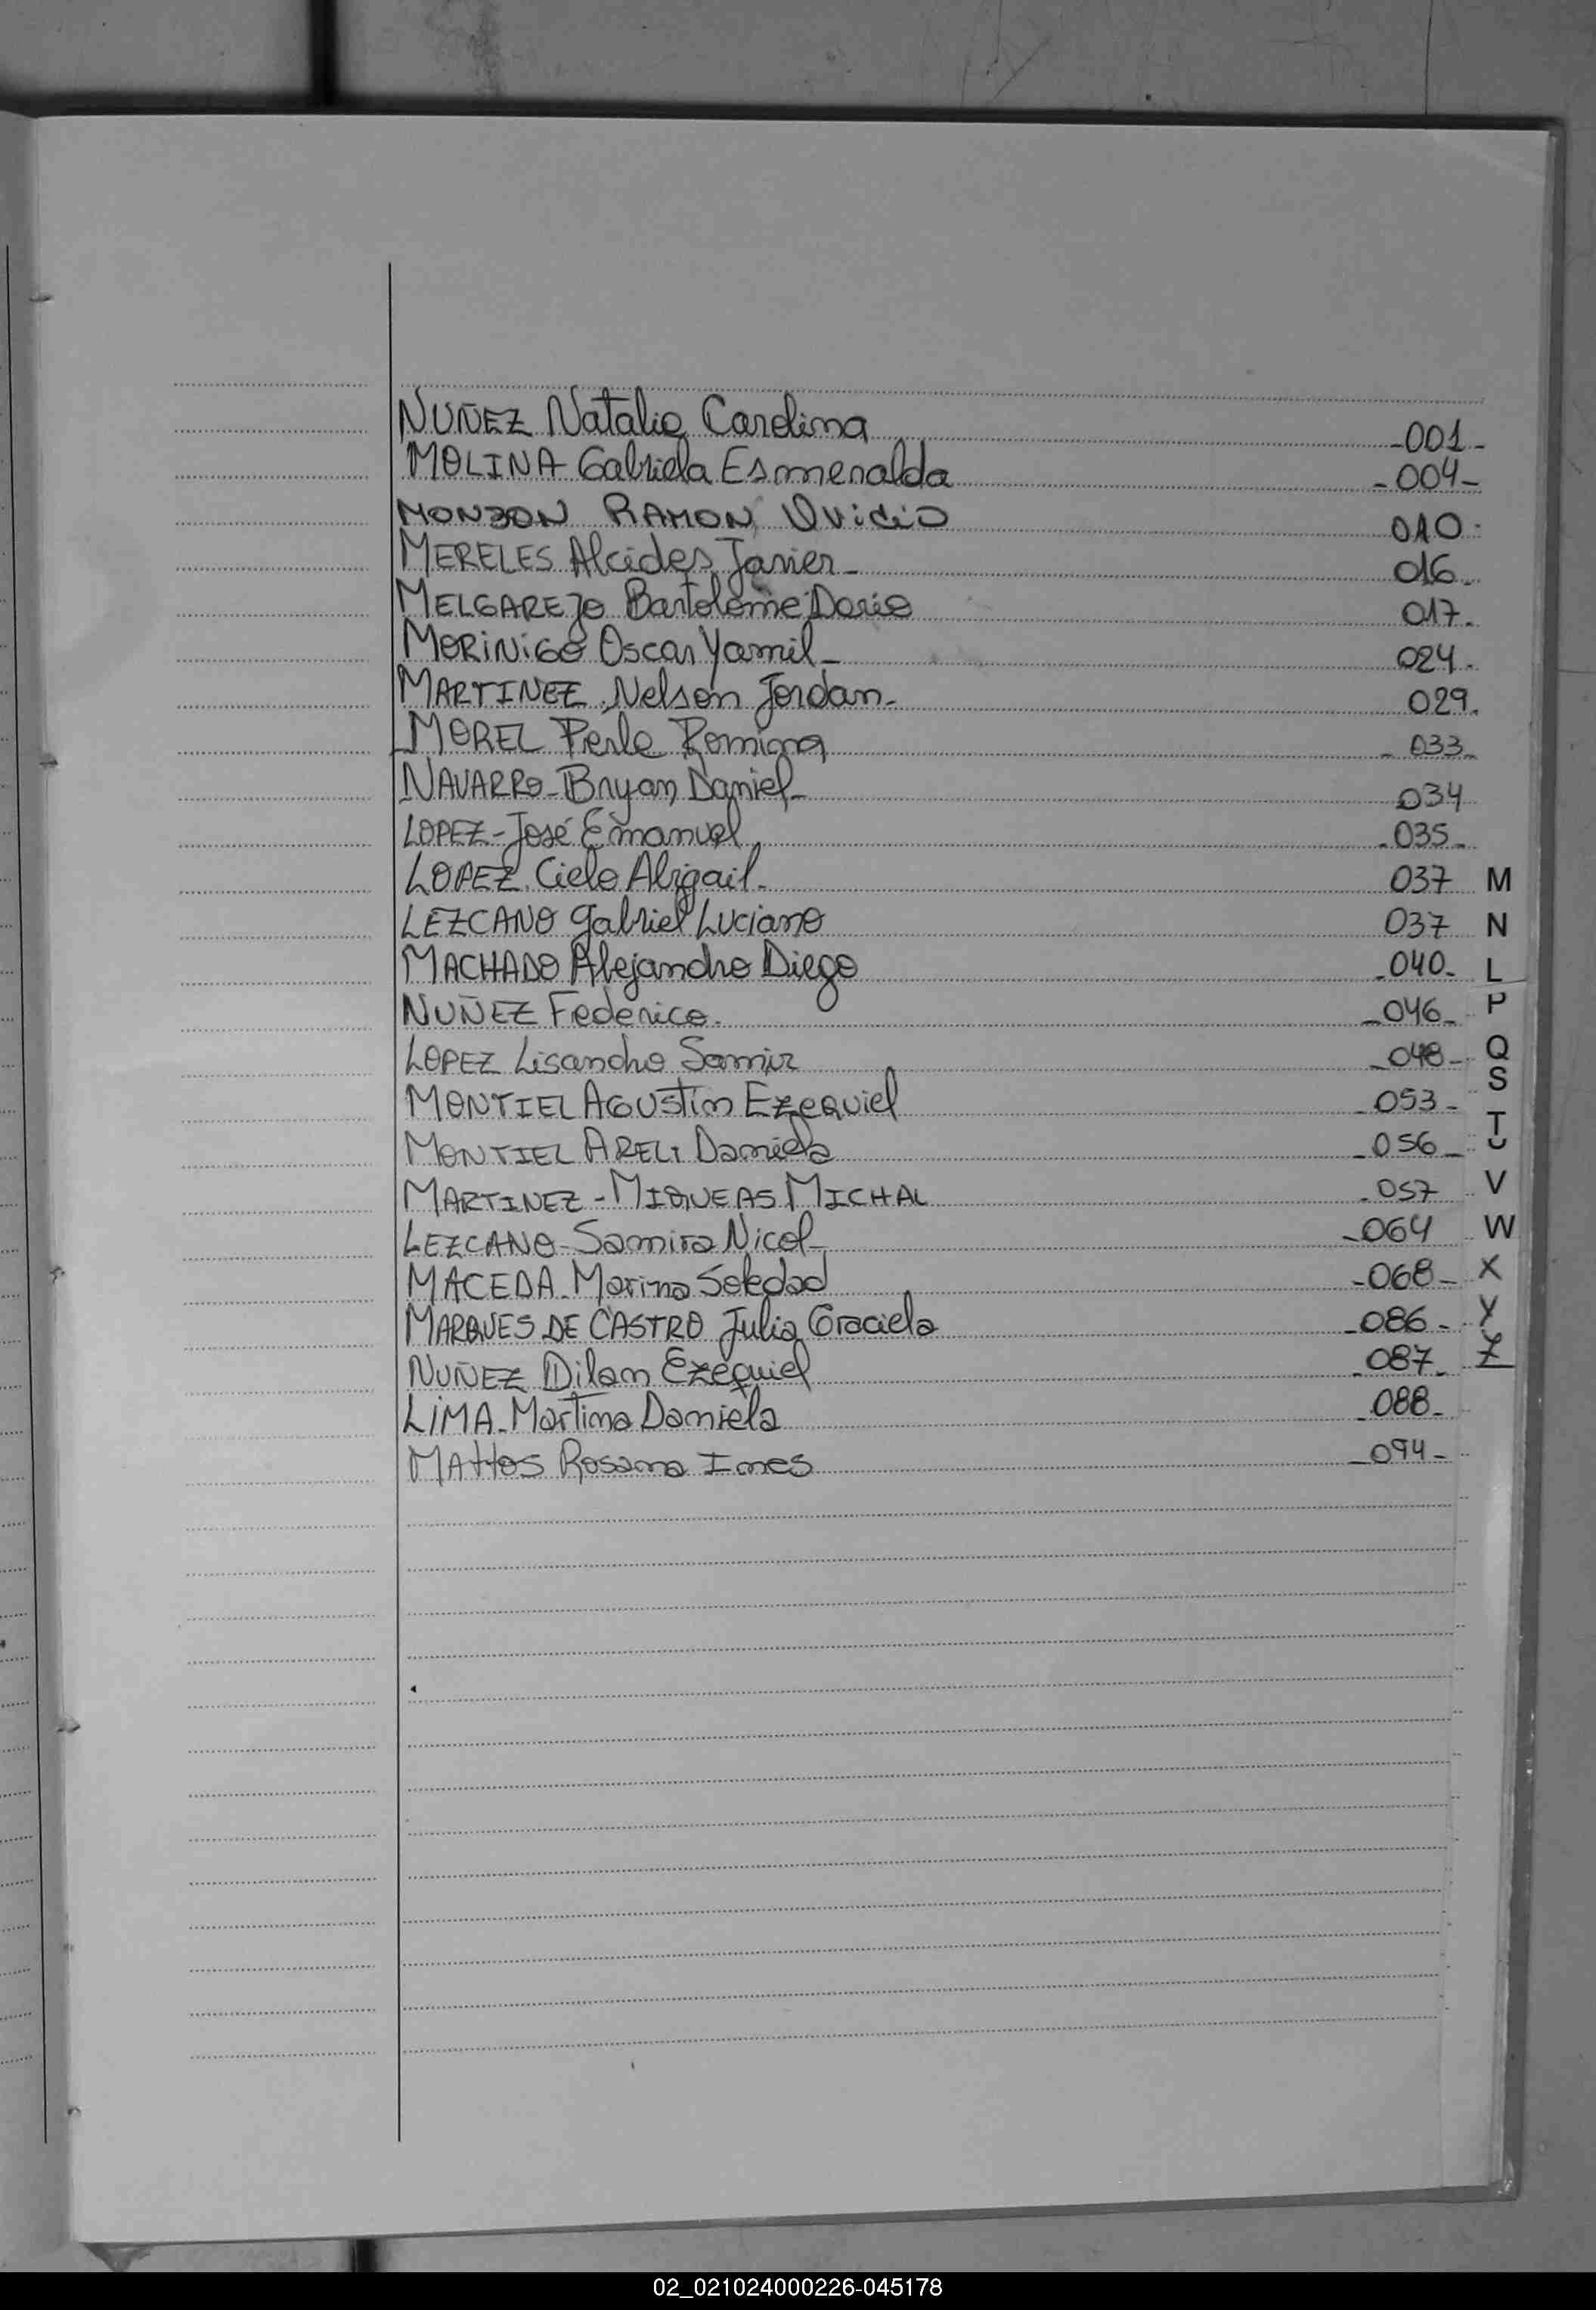 NUÑEZ Natalia Carolina -001-
MOLINA Gabriela Esmeralda -004-
MONZON RAMON Ovidio 010-
MERELES Alcides Javier- 016-
MELGAREJO Bartolome Dario 017.
MORINIGO Oscar Yamil- 024-
MARTINEZ Nelson Jordan- 029.
MOREL Perla Romina - 033-
NAVARRO- Bryan Daniel- 034
LOPEZ- José Emanuel -035-
LOPEZ Cielo Abigail. 037 M
LEZCANO Gabriel Luciano 037 N
MACHADO Alejandro Diego -040- L
NUÑEZ Federico. -046- P
LOPEZ Lisandro Samir -048- Q
S
MONTIEL AGUSTIN EZEQUIEL -053-
T
MONTIEL ARELI Daniela -056-
MARTINEZ - MIQUEAS MICHAL -057 V
LEZCANO- Samira Nicol- -064 W
MACEDA- Marina Soledad -068- X
MARQUES DE CASTRO Julia Graciela -086- Y
NUÑEZ Dilan Ezequiel -087- Z
LIMA- Martina Daniela -088-
MATTOS Rosana Ines -094-
02_021024000226-045178